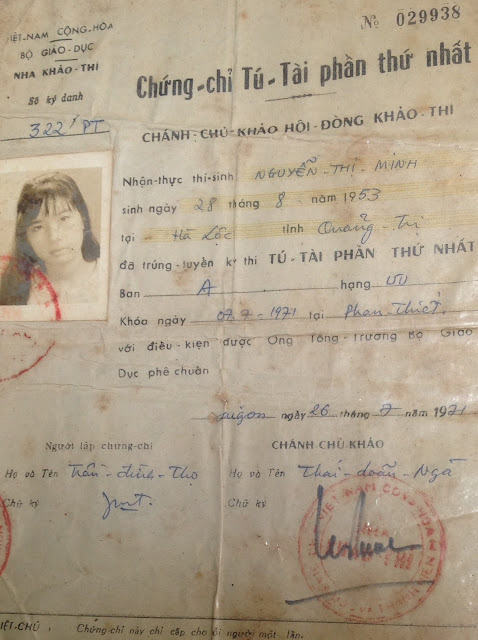 VIỆT-NAM CỘNG-HÒA
BỘ GIÁO-DỤC
NHA KHẢO-THÍ
Số ký danh
322/PT
№ 029938
Chứng-chỉ Tú-Tài phần thứ nhất
CHÁNH-CHỦ-KHẢO HỘI-ĐỒNG KHẢO-THÍ
Nhận-thực thí-sinh NGUYỄN-THỊ-MINH
sinh ngày 28 tháng 8 năm 1953
tại Hà Lộc tỉnh Quảng-Trị
đã trúng-tuyển kỳ thi TÚ-TÀI PHẦN THỨ NHẤT
Ban A hạng ƯU
Khóa ngày 07-7-1971 tại Phan Thiết
với điều-kiện được Ông Tổng-Trưởng Bộ Giáo
Dục phê chuẩn
Saigon ngày 26 tháng 7 năm 1971
Người lập chứng-chỉ
Họ và Tên Trần-đình-Thọ
Chữ ký
CHÁNH CHỦ KHẢO
Họ và Tên Thái-doãn-Ngà
Chữ ký
VIỆT NAM CỘNG HÒA
VIỆT-CHÚ : Chứng-chỉ này chỉ cấp cho mỗi người một lần.